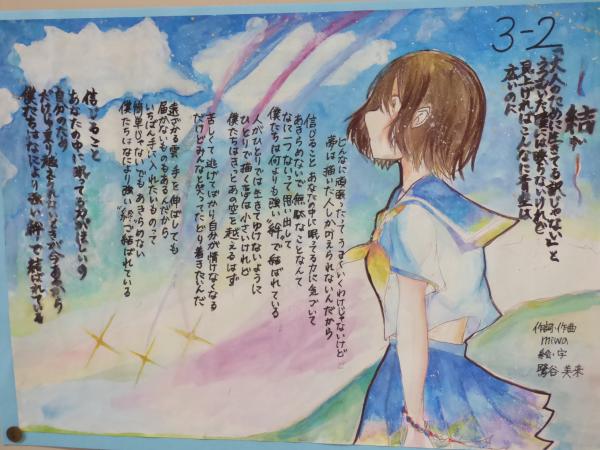 3-2
結
「大人のために生きてる訳じゃない」と
うつむいた僕には映らないけれど
見上げればこんなに青空は
広いのに
どんなに頑張ったって うまくいくわけじゃないけど
夢は描いた人しか叶えられないんだから
信じること あなたの中で眠ってる力に気づいて
あきらめないで 無駄なことなんて
なに一つないって思い出して
僕たちは何よりも強い"絆"で結ばれている
人がひとりでは生きてゆけないように
ひとりで描く夢は小さいけれど
僕らはきっとあの空も越えるはず
苦しくて 逃げてばかり 自分が情けなくなる
だけどどんなに たどり着きたいんだ
遠ざかる雲 手を伸ばしても
届かないものもあるんだから
いちばん手に入れたいものって
簡単じゃないでしょ あきらめない
僕たちはなにより強い"絆"で結ばれている
信じること
あなたの中に眠ってる力がほしいの
自分のための
だけじゃ乗り越えられない壁が今あるから
僕たちはなにより強い"絆"で結ばれている
作詞・作曲
miwa
絵・字
鷺谷 美来